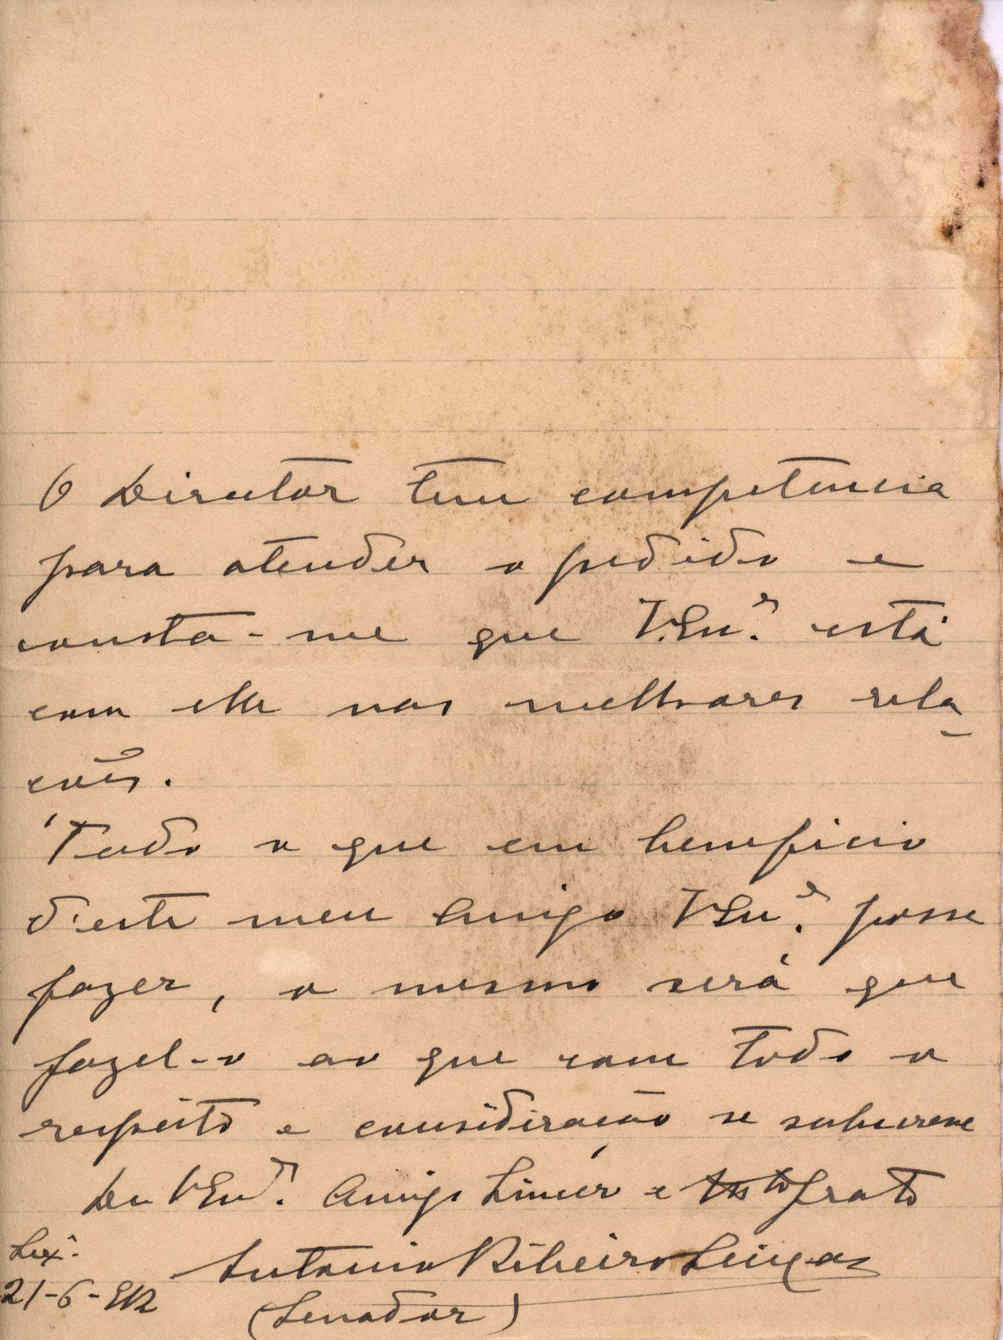 O Director tem competencia
para atender o pedido e
consta-me que V.Exª. está
com elle nas melhores rela
ções.
Tudo o que em beneficio
d'este meu Amigo VExª. posse
fazer, o mesmo será que
fazel-o ao que com todo o
respeito e consideração se subscreve
De VExª. Amigo Sincer e grato
Lxª.
21-6-912
Antonio Ribeiro Seixas
(Senador)